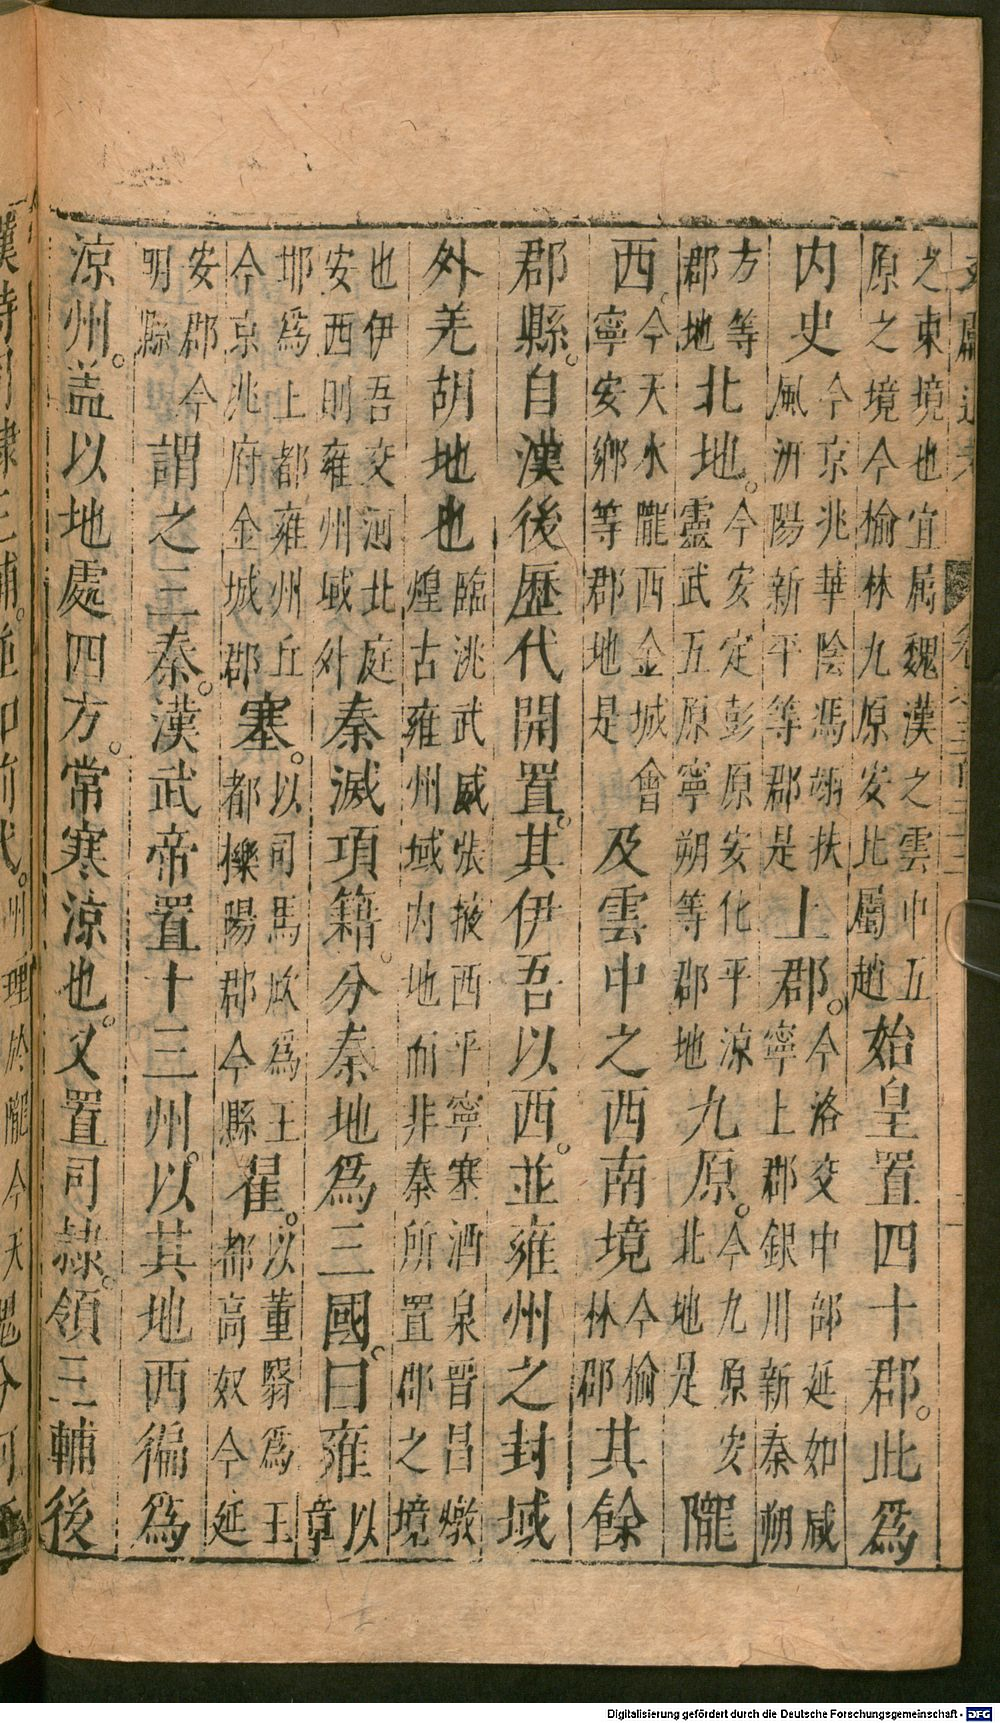 之東境也宜屬魏漢之雲中五原之境今榆林九原安北屬趙始皇置四十郡。此爲
内史今京兆華陰馮翊扶風汧陽新平等郡是上郡。今洛交中部延如咸寧上郡銀川新秦朔
方等郡地北地。今安定彭原安化平涼靈武五原寧朔等郡地九原。今九原安北地是隴
西。今天水隴西金城會寧安鄉等郡地是及雲中之西南境今榆林郡其餘
郡縣。自漢後歷代開置。其伊吾以西。並雍州之封域
外羌胡地也臨洮武威張掖西平寧寒酒泉晉昌燉煌古雍州域内地而非秦所置郡之境
也伊吾交河北庭安西則雍州域外秦滅項籍。分秦地爲三國。曰雍以章
邯爲上都雍州丘今京兆府金城郡塞。以司馬欣爲王都櫟陽郡今縣翟。以董翳爲王都高奴今延
安郡今明縣謂之三秦。漢武帝置十三州。以其地西徧爲
涼州。盖以地處四方。常寒涼也。又置司隸。領三輔後
Digitalisierung gefördert durch die Deutsche Forschungsgemeinschaft - DFG